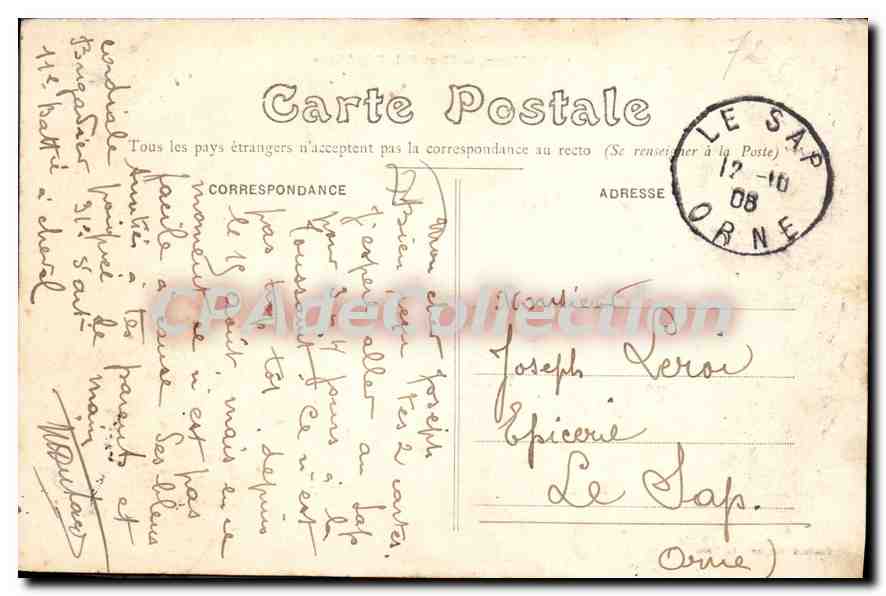 72
Carte Postale
Tous les pays étrangers n'acceptent pas la correspondance au recto (Se renseigner à la Poste)
CORRESPONDANCE
ADRESSE
LE SAP
12 -10
08
ORNE
Mon cher Joseph
Bien reçu tes 2 cartes.
J'espère aller au Sap
pour 3 ou 4 jours à la
Toussaint. Ce n'est
pas trop tôt. depuis
le 15 août, mais en ce
moment ce n'est pas
facile à cause des bleus
Amitiés à tes parents et
cordiale poignée de main
Brigadier 31e d'art.
11e batte à cheval
Monsieur
Joseph Leroi
Epicerie
Le Sap.
Orne)
CPAdeCollection